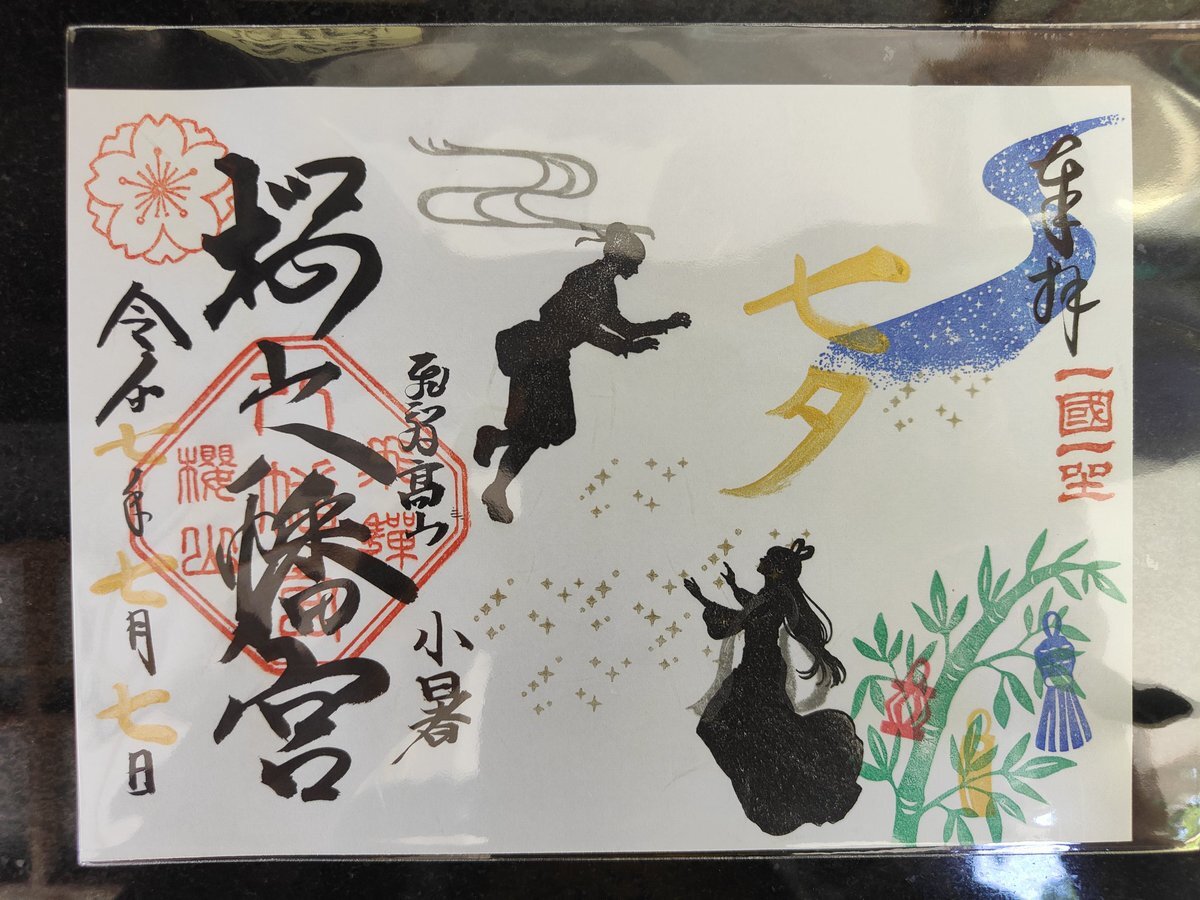 奉拝
一國一坐
七夕
飛騨高山
小暑
桜山八幡宮
飛驒
八幡宮
櫻山
令和七年七月七日